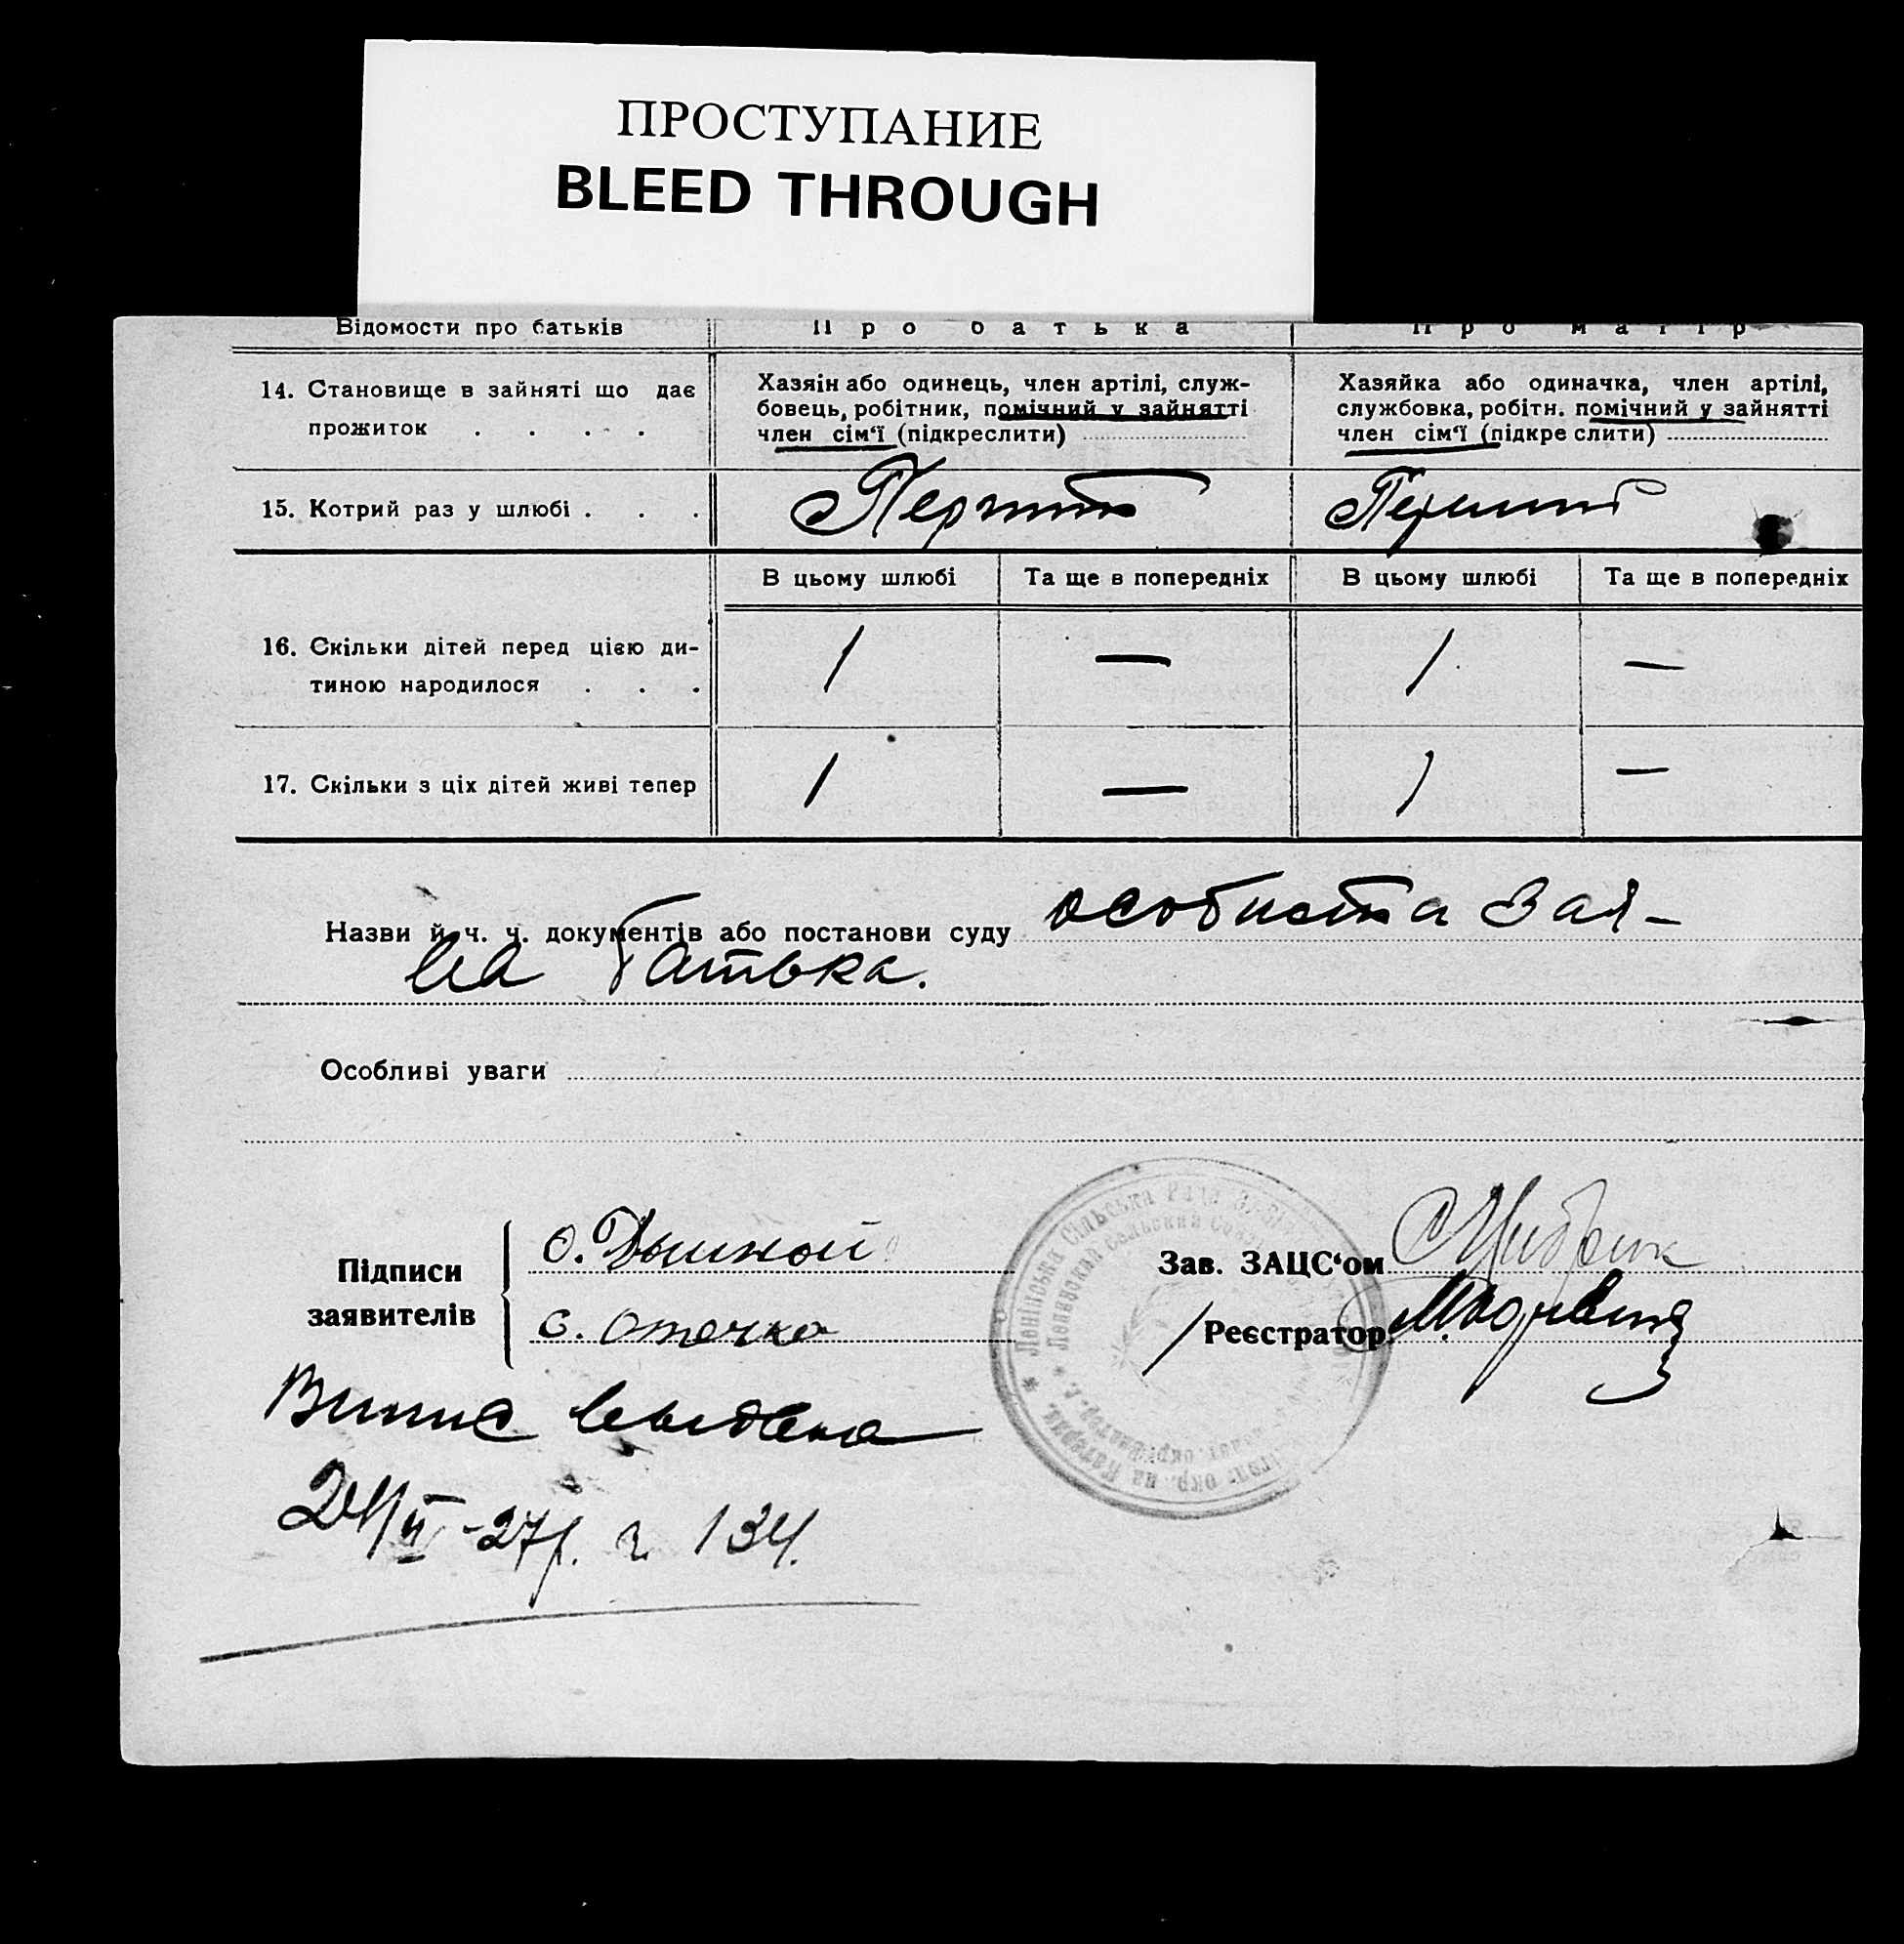 ПРОСТУПАНИЕ
BLEED THROUGH
Відомости про батьків
Про батька
Про матір
14. Становище в зайняті що дає
прожиток . . . .
Хазяін або одинець, член артілі, служ-
бовець, робітник, помічний у зайнятті
член сім‘ї (підкреслити)
Хазяйка або одиначка, член артілі,
службовка, робітн. помічний у зайнятті
член сім‘ї (підкре слити)
15. Котрий раз у шлюбі . . .
Перший
Перший
В цьому шлюбі
Та ще в попередніх
В цьому шлюбі
Та ще в попередніх
16. Скільки дітей перед цією ди-
тиною народилося . . .
1
—
1
—
17. Скільки з ціх дітей живі тепер
1
—
1
—
Назви й ч. ч. документів або постанови суду особиста зая-
ва батька.
Особливі уваги
Підписи
заявителів
с. Оточка
Зав. ЗАЦС‘ом
Реєстратор
Ленінська Сільська Рада
Випис выдана
-27р. 134.